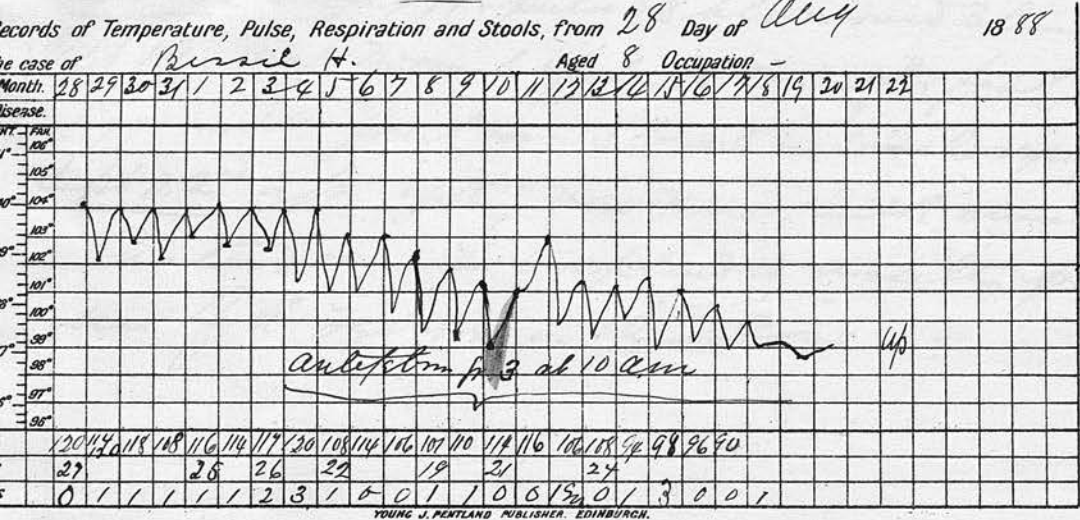 ecords of Temperature, Pulse, Respiration and Stools, from 28 Day of Aug 1888
he case of Bessie H. Aged 8 Occupation –
Month. 28 29 30 31 1 2 3 4 5 6 7 8 9 10 11 12 13 14 15 16 17 18 19 20 21 22
Disease.
NT. FAH.
106°
105°
104°
103°
102°
101°
100°
99° up
98° at 10 am
97°
96°
120 118 108 116 114 117 120 108 114 106 107 110 114 116 106 108 94 98 96 90
27 25 26 22 19 21 24
0 1 1 1 1 1 2 3 1 0 0 1 1 0 0 0 1 3 0 0 1
YOUNG J. PENTLAND PUBLISHER. EDINBURGH.